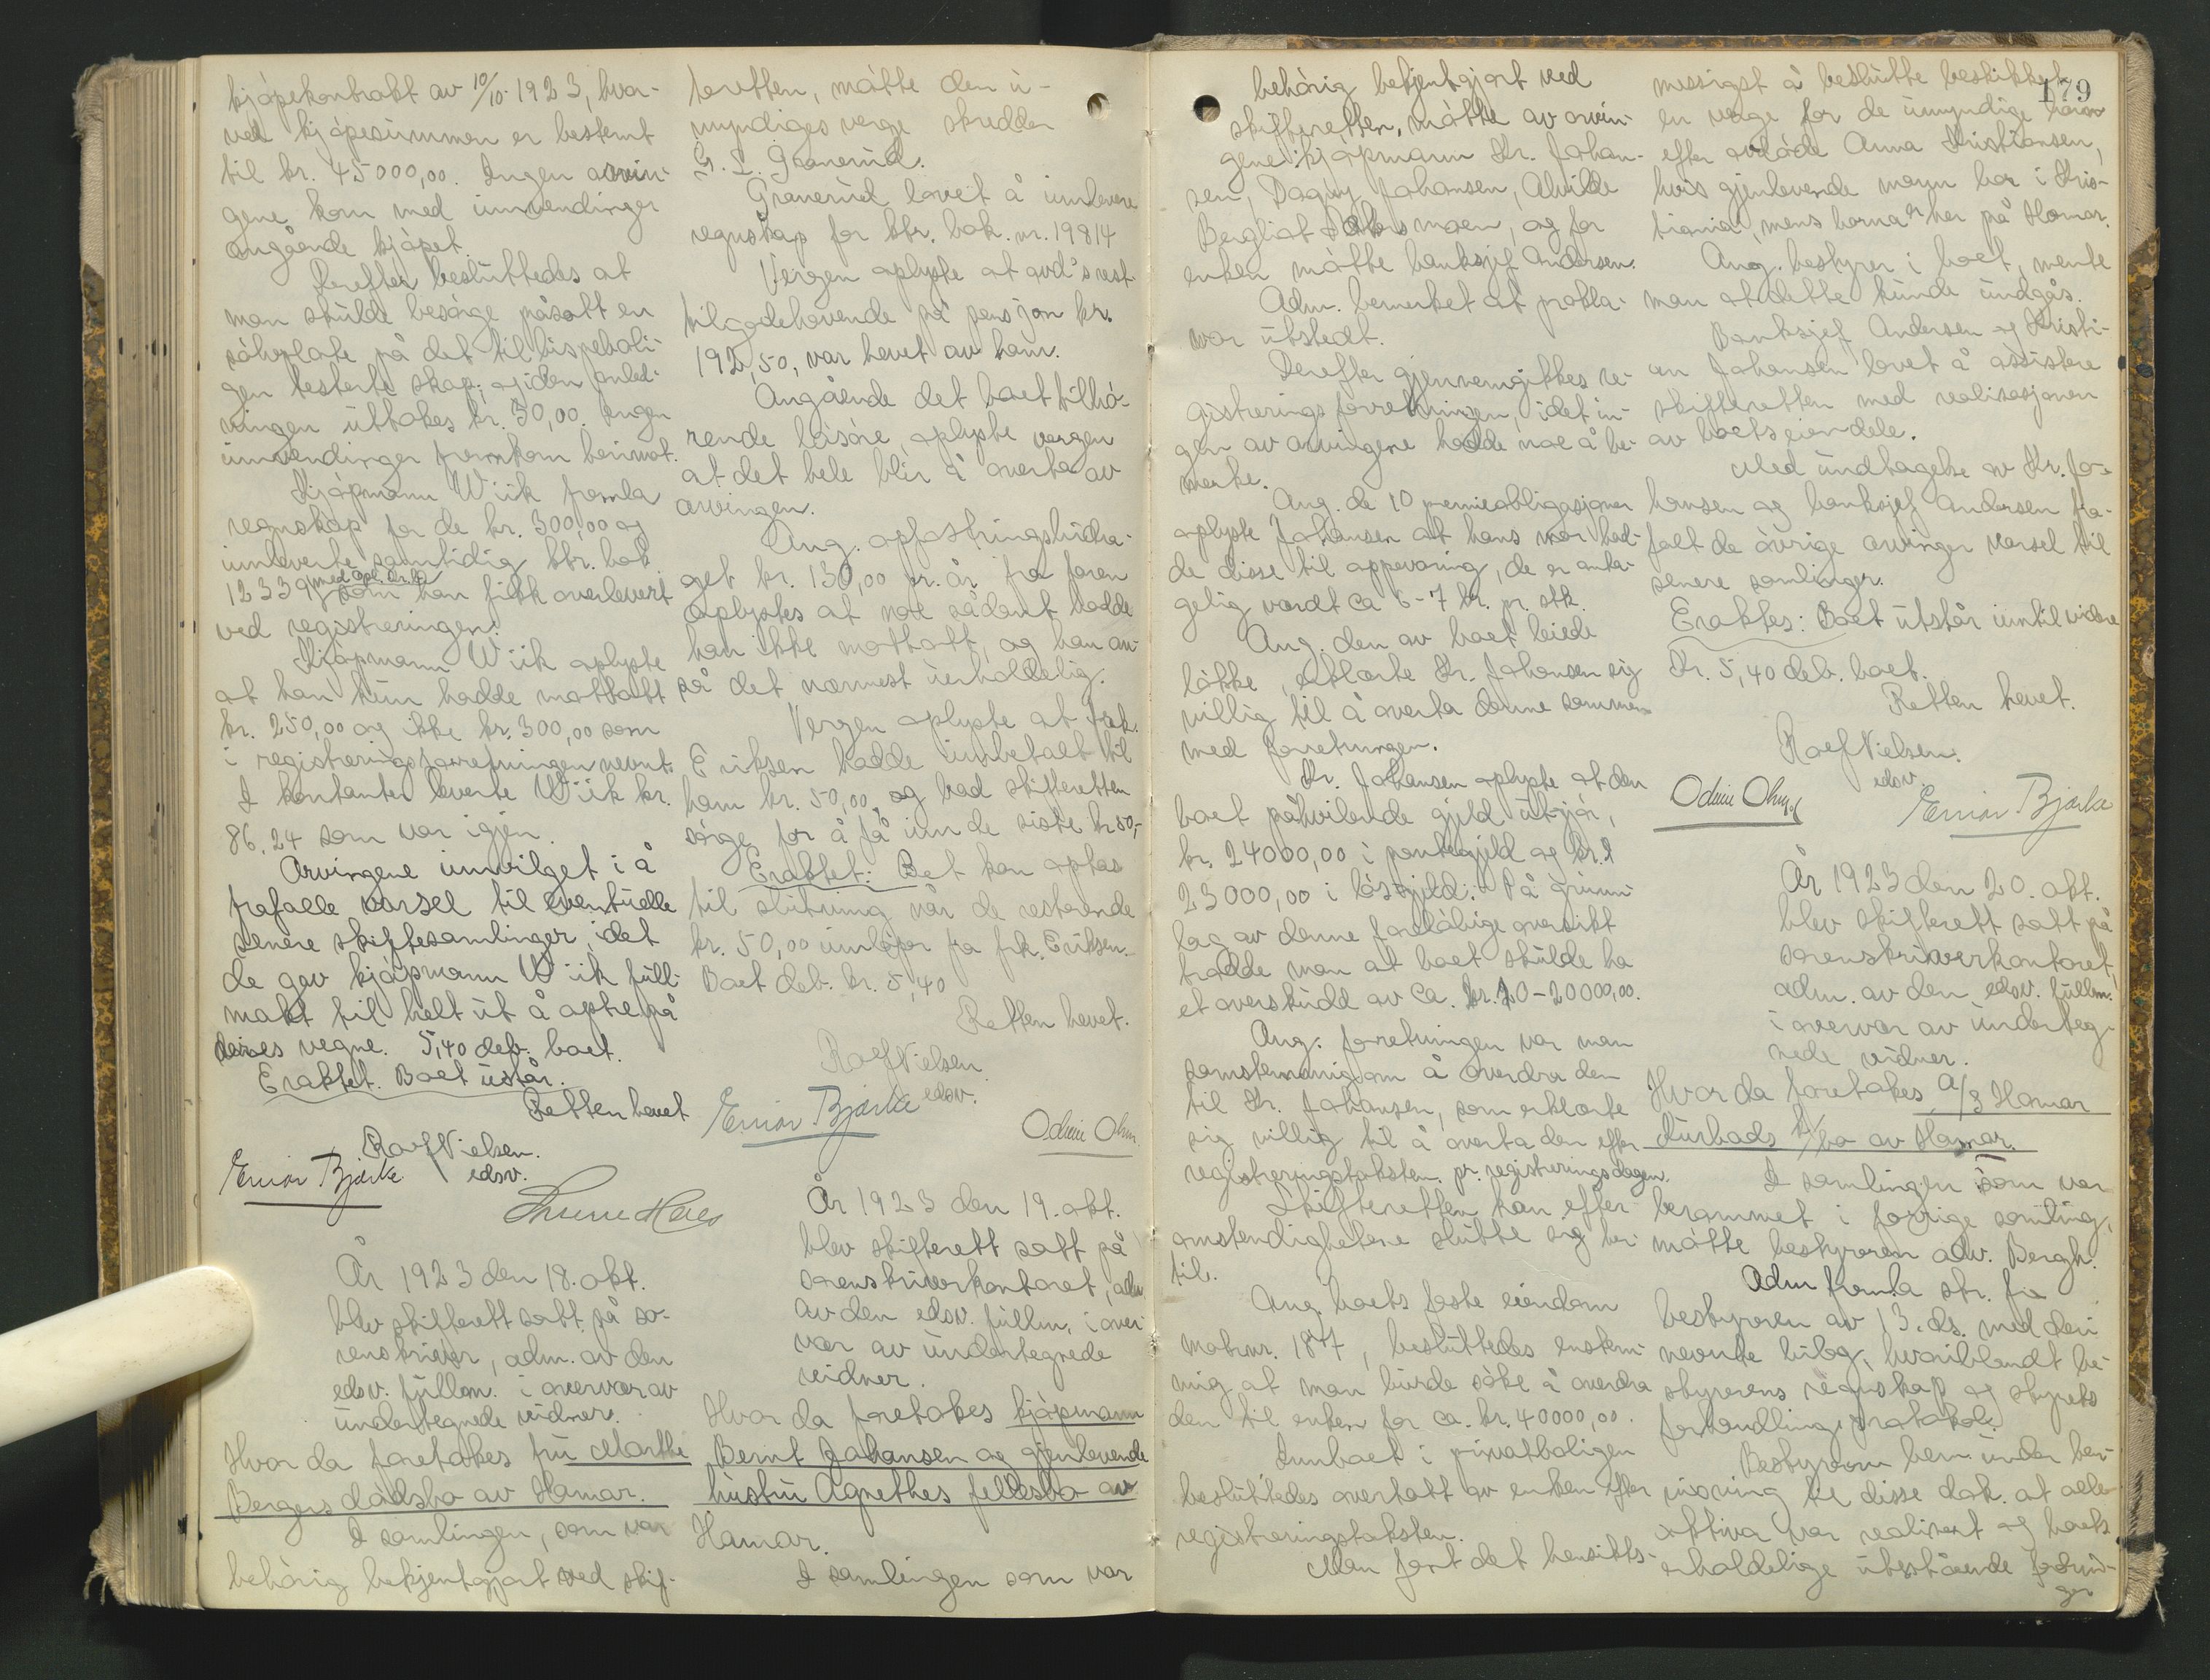 kjøpekontrakt av 10/10. 1923, hvor-
ved kjøpesummen er bestemt
til kr. 45000,00. Ingen arvin-
gene kom med innvendinger
angående kjøpet.
Derefter besluttedes at
man skulde besørge påsatt en
sølvplate på det til bispeboli-
gen testerte skap, i den anled-
ningen uttakes kr. 30,00. Ingen
innvendinger fremkom herimot.
Kjøpmann Wiik fremla
regnskap for de kr. 300,00 og
innleverte samtidig bbr. bok
12339 som han fikk overlevert
ved registreringen.
Kjøpmann Wiik oplyste
at han kun hadde mottatt
kr. 250,00 og ikke kr. 300,00 som
i registreringsforretningen nevnt.
I kontanter leverte Wiik kr.
86,24 som var igjen.
Arvingene innvilget i å
frafalle varsel til eventuelle
senere skiftesamlinger, idet
de gav kjøpmann Wiik full-
makt til helt ut å optre på
deres vegne. 5,40 deb. boet.
Eraktet. Boet utstår.
Retten hevet
Rolf Nielsen.
edsv.
Einar Bjørke
År 1923 den 18. okt.
blev skifterett satt på so-
renskriver, adm. av den
edsv. fullm. i overvær av
undertegnede vidner.
Hvor da foretokes fru Marthe
Bergers dødsbo av Hamar.
I samlingen, som var
behørig bekjentgjort ved skif-
teretten, møtte den u-
myndiges verge skredder
Granerud.
Granerud lovet å innlevere
regnskap for bbr. bok. nr. 19814
Vergen oplyste at avd's rest-
tilgodehavende på pensjon kr.
192,50, var hevet av ham.
Angående det boet tilhø-
rende løsøre, oplyste vergen
at det hele blir å overta av
arvingen.
Ang. opfostringsbidra-
get kr. 130,00 pr. år fra faren
oplystes at noe sådant hadde
han ikke mottatt, og han an-
så det nærmest uerholdelig.
Vergen oplyste at frk.
Eriksen hadde innbetalt til
ham kr. 50,00, og bad skifteretten
sørge for å få inn de siste kr 50,-
Eraktet: Bet kan optas
til slutning når de resterende
kr. 50,00 innløper fra frk. Eriksen.
Boet deb. kr. 5,40
Retten hevet.
Rolf Nielsen
edsv.
Einar Bjørke
Odin Ohrn
År 1923 den 19. okt.
blev skifterett satt på
sorenskriverkontoret, adm
av den edsv. fullm. i over-
vær av undertegnede
vidner.
Hvor da foretokes kjøpmann
Bernt Johansen og gjenlevende
hustru Agnethes fellesbo av
Hamar.
I samlingen som var
179
behørig bekjentgjort ved
skifteretten, møtte av arvin-
gene: kjøpmann Kr. Johan-
sen, Dagny Johansen, Alvilde
Bergliot moen, og for
enken møtte banksjef Andersen.
Adm. bemerket at prokla-
var utstedt.
Derefter gjennemgikkes re-
gistreringsforretningen, idet in-
gen av arvingene hadde noe å be-
merke.
Ang. de 10 premieobligasjoner
oplyste Johansen at hans mor had-
de disse til oppevaring, de er anta-
gelig verdt ca 6-7 kr. pr. stk.
Ang. den av boet leiede
løkke, erklærte Kr. Johansen sig
villig til å overta denne sammen
med forretningen.
Kr. Johansen oplyste, at den
boet påhvilende gjeld utgjør,
kr. 24000,00 i pantegjeld og kr.
23000,00 i løsgjeld. På grunn-
lag av denne foreløbige oversikt
trodde man at boet skulde ha
et overskudd av ca. kr. 10-20000,00.
Ang. forretningen var man
samstemmig om å overdra den
til Kr. Johansen, som erklærte
sig villig til å overta den efter
registreringstaksten. pr. registreringsdagen.
Skifteretten kan efter
omstendighetene slutte sig her-
til.
Ang. boets faste eiendom
matrnr. 1877, besluttedes enstem-
mig at man burde søke å overdra
den til enken for ca. kr. 40000,00.
Innboet i privatboligen
besluttedes overtatt av enken efter
registreringstaksten.
Man fant det hensikts-
messigst å beslutte beskikket
en verge for de umyndige barn
efter avdøde Anna Kristiansen,
hvis gjenlevende mann bor i Kris-
tiania, mens barna er her på Hamar.
Ang. bestyrer i boet, mente
man at dette kunde undgås.
Banksjef Andersen og Kristi-
an Johansen lovet å assistere
skifteretten med realisasjonen
av boets eiendele.
Med undtagelse av Kr. Jo-
hansen og banksjef Andersen fra-
falt de øvrige arvinger varsel til
senere samlinger.
Eraktes: Boet utstår inntil videre
Kr. 5,40 deb. boet.
Retten hevet.
Rolf Nielsen.
edsv.
Odin Ohrn
Einar Bjørke
År 1923 den 20. okt.
blev skifterett satt på
sorenskriverkontoret,
adm. av den edsv. fullm.
i overvær av underteg-
nede vidner.
Hvor da foretokes A/S Hamar
Kurbads k/bo av Hamar.
I samlingen som var
berammet i forrige samling,
møtte bestyreren adv. Bergh.
Adm fremla skr. fra
bestyreren av 13. ds. med deri
nevnte bilag, hvoriblandt be-
styrerens regnskap og styrets
forhandlingsprotokol.
Bestyreren bem. under hen-
visning til disse dok. at alle
aktiva var realisert og boets
erholdelige utestående fordrin-
ger